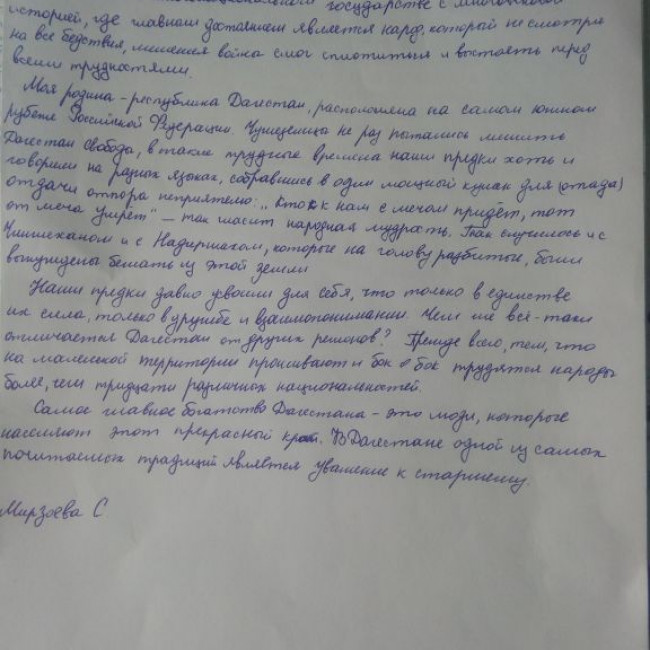 государстве с
историей, где главным достоянием является народ, который не смотря
на все бедствия, лишения война смог сплотиться и выстоять перед
всеми трудностями.
Моя родина - республика Дагестан, расположена на самом южном
рубеже Российской Федерации. Чужеземца не раз пытались лишить
Дагестан Свобода, в такие трудные времена наши предки хоть и
говорили на разных языках, собравшись в один мощный кулак для (отпада)
отдачи отпора неприятелю: „Кто к нам с мечом придёт, тот
от меча умрет" – так гласит народная мудрость. Так случилось и с
Чингисханом и с Надиршахом, которые на голову разбитые, были
вынуждены бежать из этой земли
Наши предки давно усвоили для себя, что только в единстве
их сила, только в дружбе и взаимопонимании. Чем же всё-таки
отличается Дагестан от других регионов? Прежде всего, тем, что
на маленькой территории проживают и бок о бок трудятся народы
более, чем тридцати различных национальностей.
Самое главное богатство Дагестана - это люди, которые
населяют этот прекрасный край. В Дагестане одной из самых
почитаемых традиций является уважение к старшему.
Мирзоева С